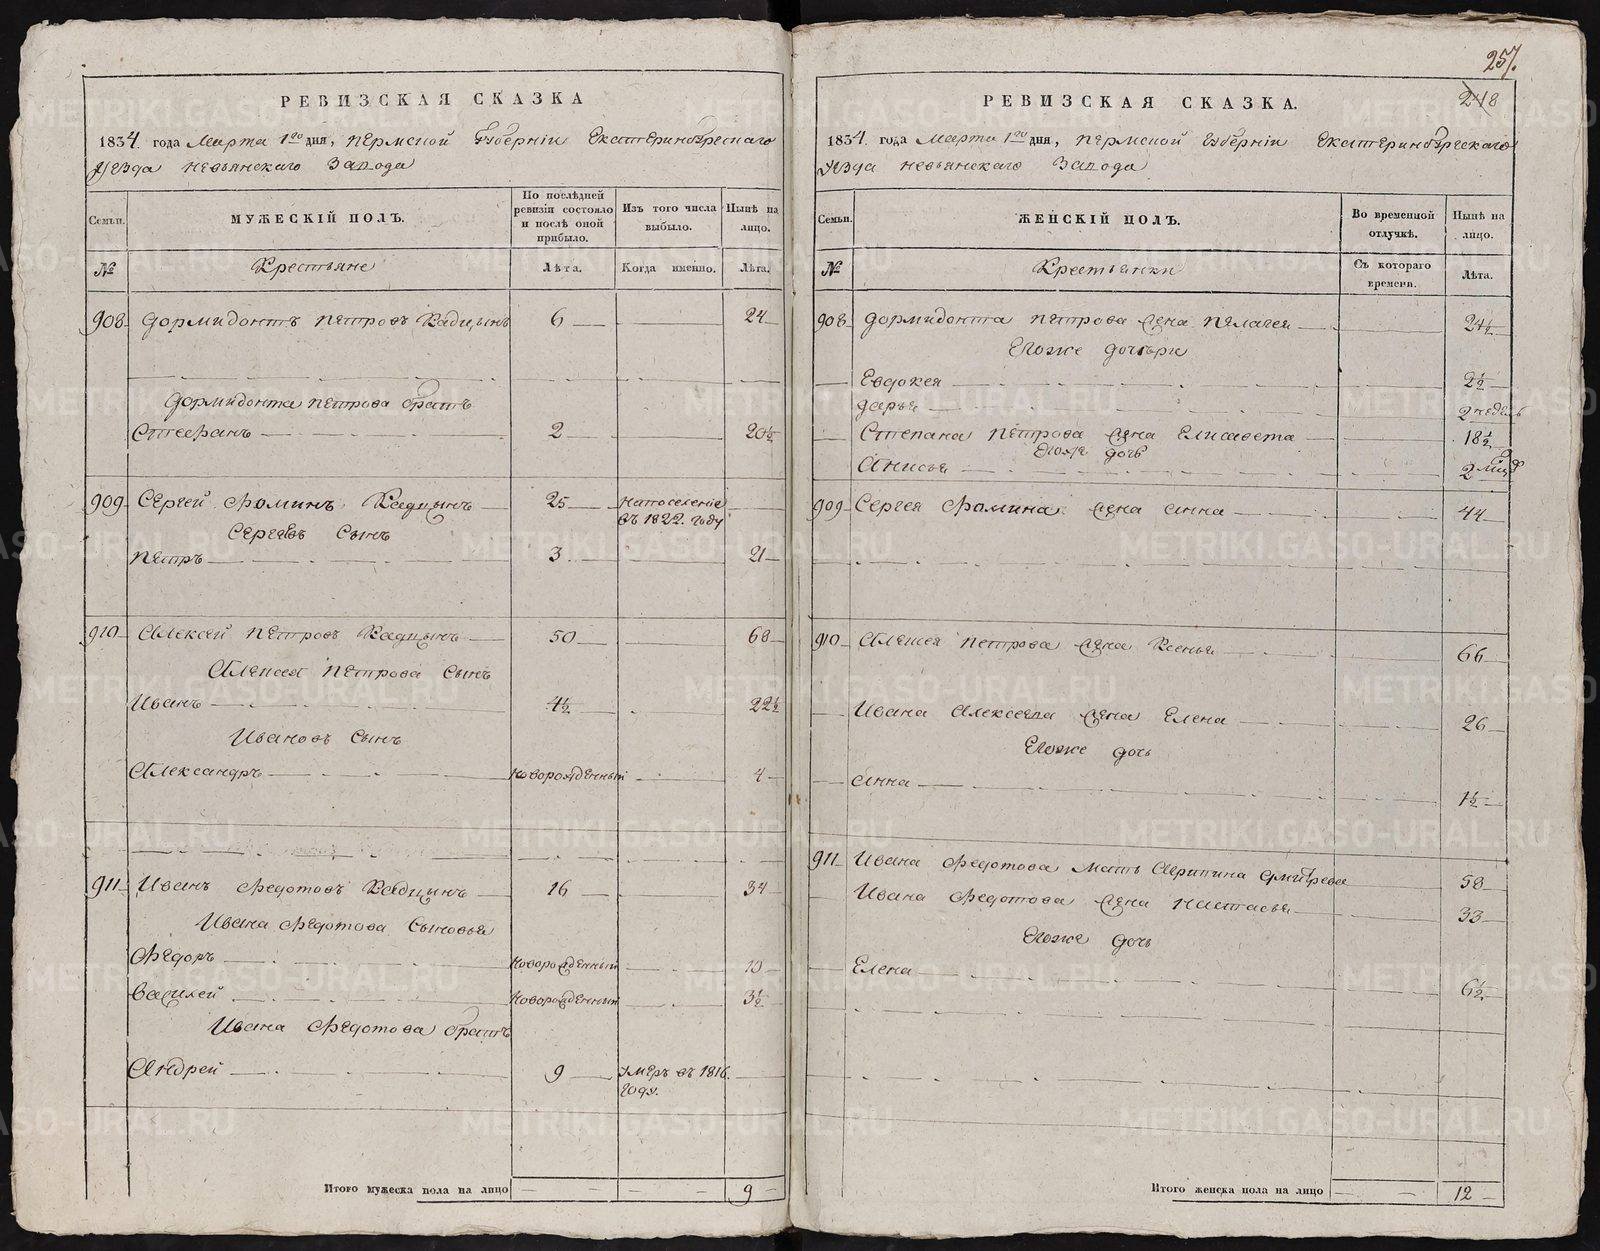 257.
248
РЕВИЗСКАЯ СКАЗКА
1834 года Марта 1го дня, Пермской Губернии Екатеринбургскаго
Уезда Невьянскаго Завода
Семьи.
МУЖЕСКІЙ ПОЛЪ.
По послѣдней ревизіи состояло и послѣ оной прибыло.
Изъ того числа выбыло.
Нынѣ на лицо.
№
Крестьяне
Лѣта.
Когда именно.
Лѣта.
908 Дормидонтъ Петровъ Кадцынъ 6 24
Дормидонта Петрова братъ
Стефанъ 2 20½
909 Сергей Фоминъ Кадцынъ 25 на поселение въ 1822. году
Сергеевъ сынъ
Петръ 3 21
910 Алексей Петровъ Кадцынъ 50 68
Алексея Петрова сынъ
Иванъ 4½ 22½
Ивановъ сынъ
Александръ новорожденный 4
911 Иванъ Федотовъ Кадцынъ 16 34
Ивана Федотова сыновья
Федоръ новорожденный 10
Василей новорожденный 3½
Ивана Федотова братъ
Андрей 9 умеръ въ 1816. году.
Итого мужеска пола на лицо 9
РЕВИЗСКАЯ СКАЗКА.
1834 года Марта 1го дня, Пермской Губерніи Екатеринбургскаго
Уезда Невьянскаго Завода
Семьи.
ЖЕНСКІЙ ПОЛЪ.
Во временной отлучкѣ.
Нынѣ на лицо.
№
Крестьянки
Съ котораго времени.
Лѣта.
908 Дормидонта Петрова жена Пелагея 24½
Егоже дочери
Евдокея 2½
Дарья 2 недель
Степана Петрова жена Елисавета 18½
Егоже дочь
Анисья 2
909 Сергея Фомина жена Анна 44
910 Алексея Петрова жена Ксенья 66
Ивана Алексеева жена Елена 26
Егоже дочь
Анна 1½
911 Ивана Федотова мать Акрипина Дмитрева 58
Ивана Федотова жена Настасья 33
Егоже дочь
Елена 6½
Итого женска пола на лицо 12
METRIKI.GASO-URAL.RU